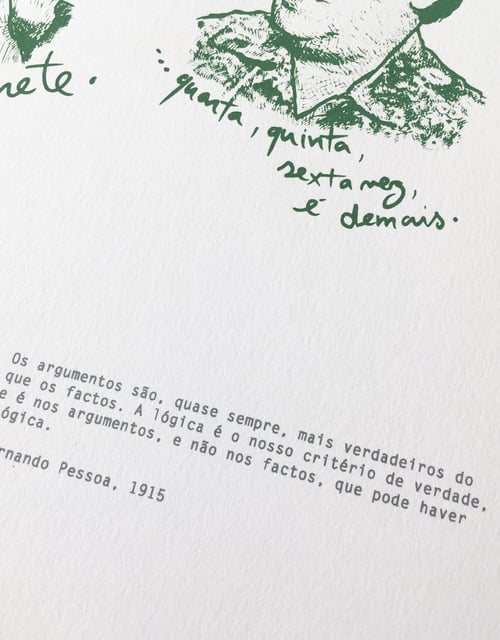 ...quarta, quinta,
sexta vez,
é demais.
Os argumentos são, quase sempre, mais verdadeiros do
que os factos. A lógica é o nosso critério de verdade,
e é nos argumentos, e não nos factos, que pode haver
lógica.
Fernando Pessoa, 1915